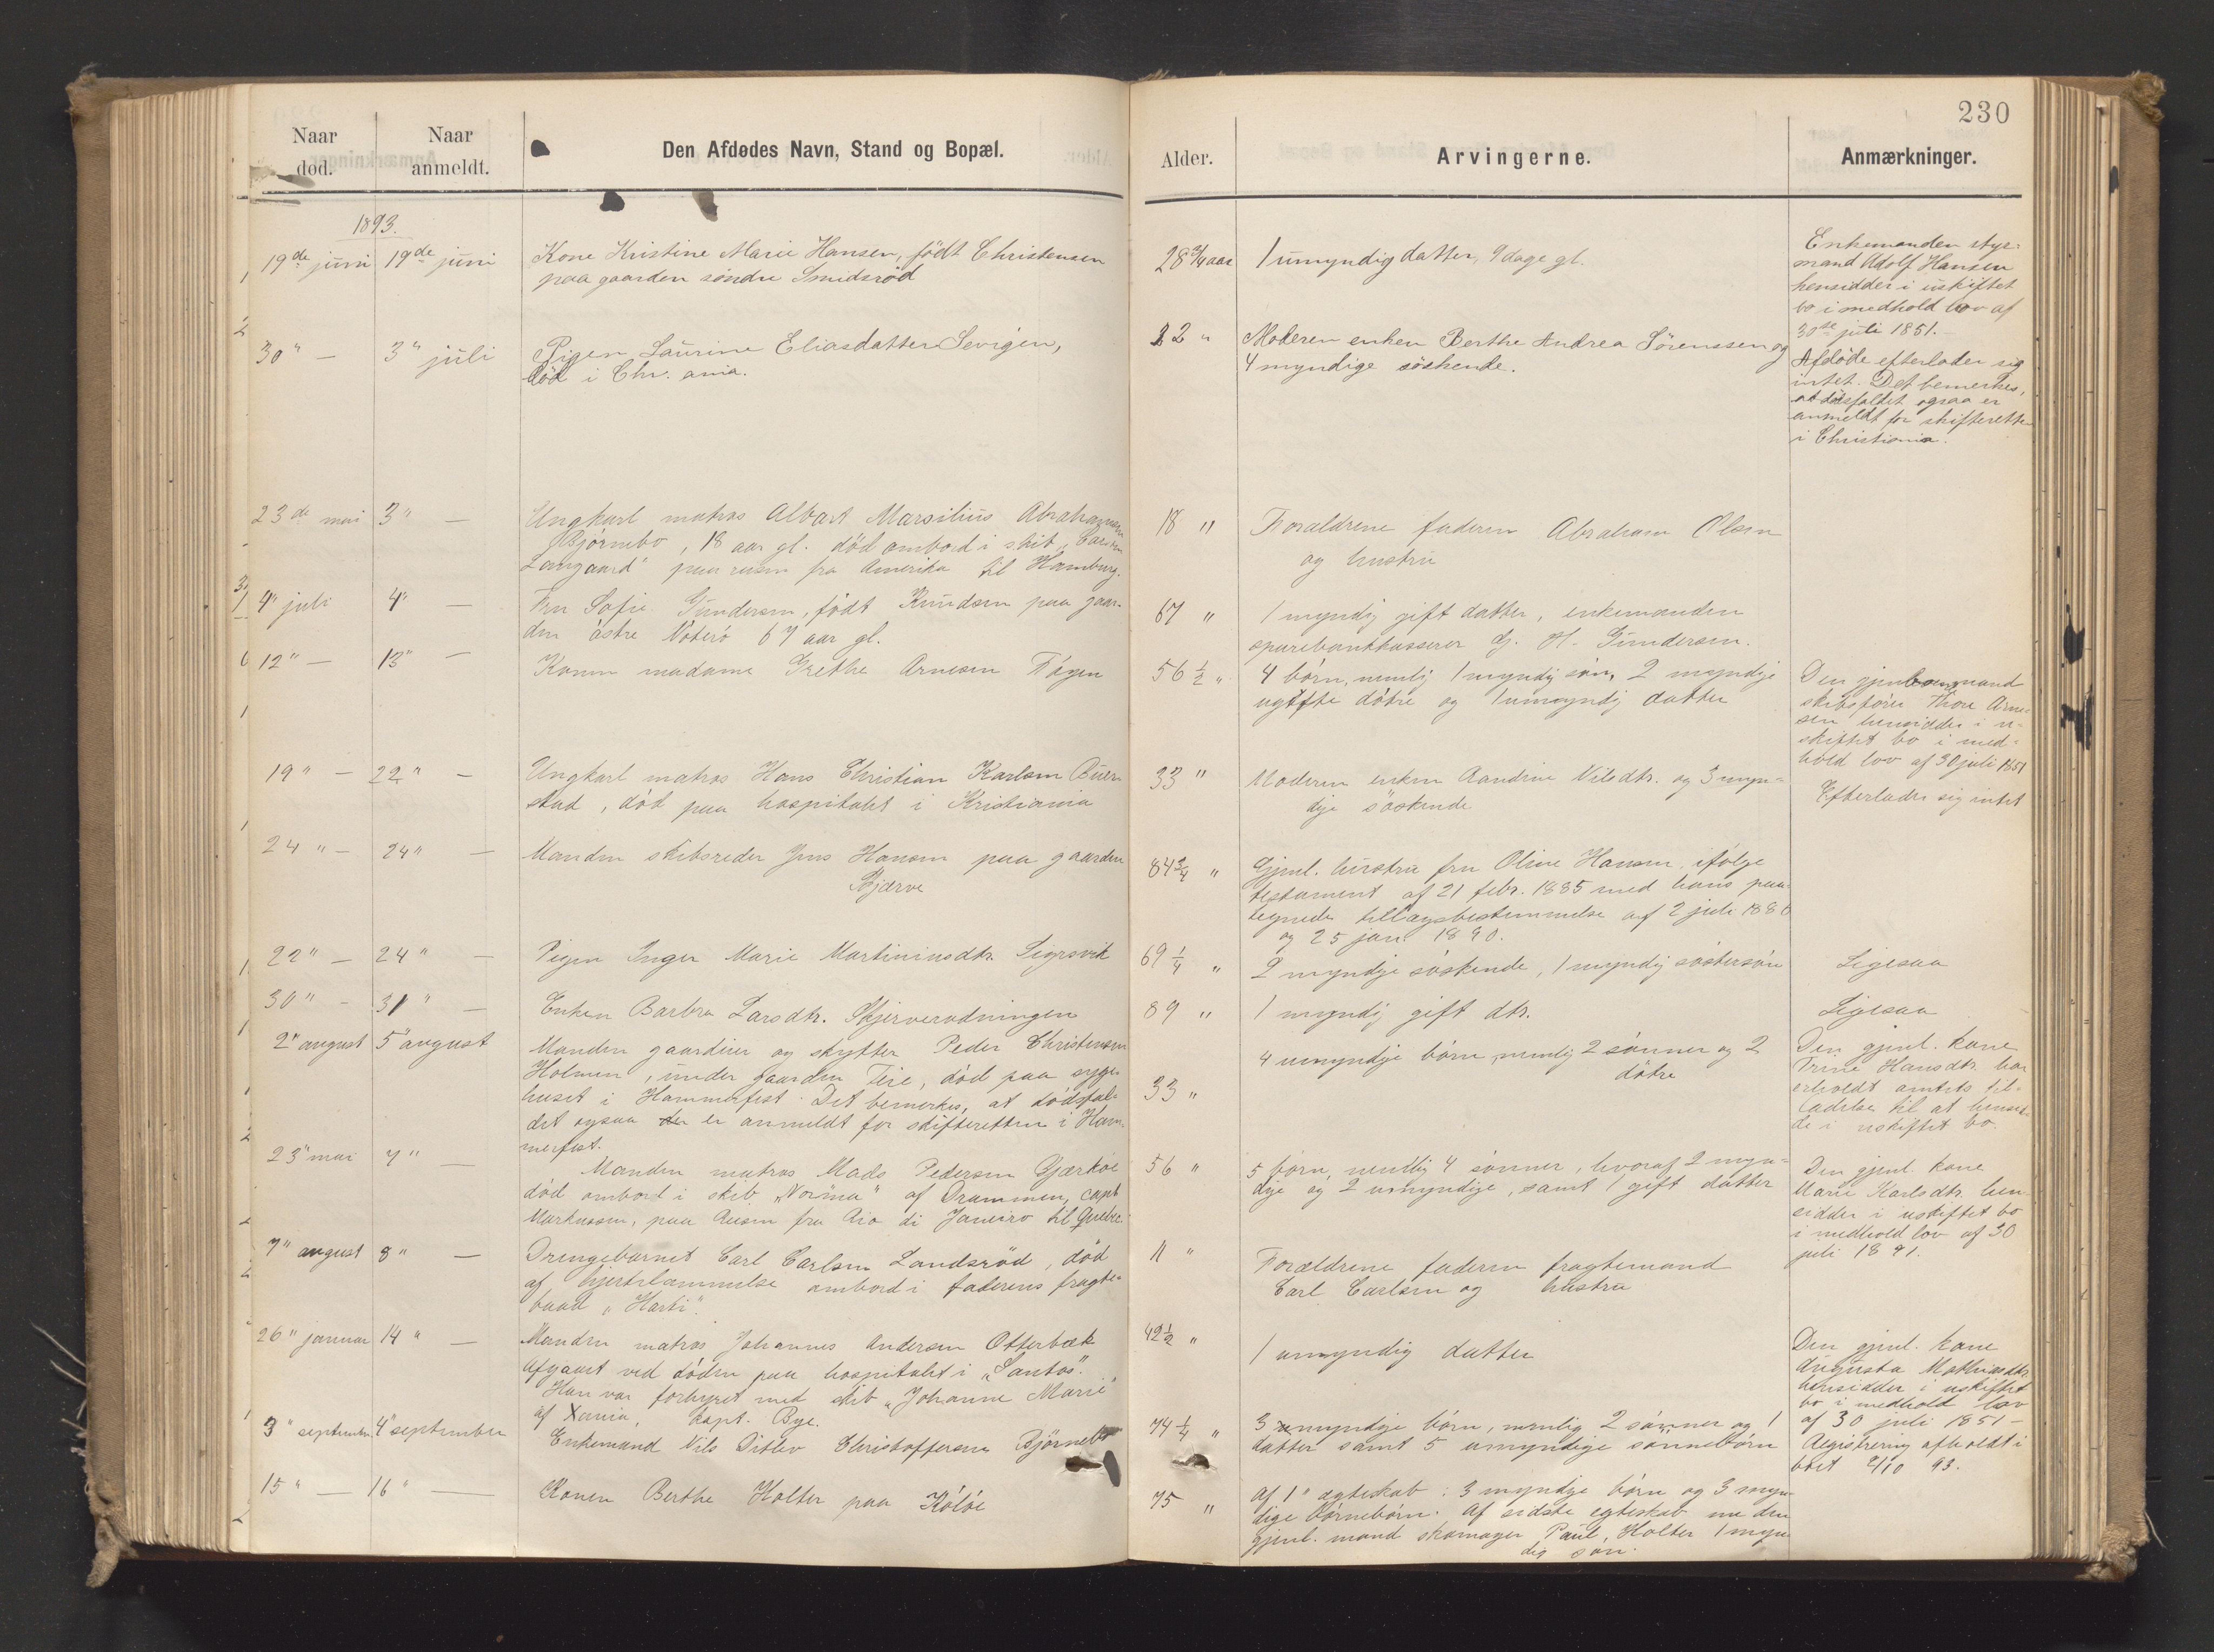 230
Naar død.
Naar anmeldt.
Den Afdødes Navn, Stand og Bopæl.
Alder.
Arvingerne.
Anmærkninger.
1893.
19de juni
19de juni
Kone Kristine Marie Hansen, född Christensen
paa gaarden söndre Smidsröd
28 3/4 aar
1 umyndig datter, 9 dage gl.
Enkemanden styr-
mand Adolf Hansen
hensidder i uskiftet
bo i medhold lov af
30te juli 1851.
30" —
3" juli
Pigen Laurine Eliasdatter Sevigen,
död i Chr. ania.
22 "
Moderen enken Berthe Andrea Sörenssen og
4 myndige söskende.
Afdöde efterlader sig
intet. Det bemerkes,
at dödsfaldet ogsaa er
anmeldt for skifteretten
i Christiania.
23de mai
3" —
Ungkarl matros Albart Marsilius Abrahamsen
Björnebo, 18 aar gl. död ombord i skib "Carsten
Langaard" paa reisen fra Amerika til Hamburg.
18 "
Foraldrene faderen Abraham Olsen
og hustru
4" juli
4" —
Fru Sofie Gundersen, född Knudsen paa gaar-
den östre Nöterö 67 aar gl.
67 "
1 myndig gift datter, enkemanden
sparebankkasserer G. H. Gundersen.
12" —
13" —
Konen madame Grethe Arnesen Fögen
56 1/2 "
4 börn, nemlig 1 myndig sön, 2 myndige
ugifte dötre og 1 umyndig datter
Den gjenl. mand
skibsförer Thore Arne-
sen hensidder i u-
skiftet bo i med-
hold lov af 30 juli 1851
19" —
22" —
Ungkarl matros Hans Christian Karlsen Buer-
stad, död paa hospitalet i Kristiania
33 "
Moderen enken Randine Nilsdtr. og 3 myn-
dige söskende
Efterlader sig intet
24" —
24" —
Manden skibsreder Jens Hansen paa gaarden
Skjærve
84 3/4 "
Gjenl. hustru fru Oline Hansen ifölge
testament af 21 febr. 1885 med hans paa-
tegnede tillægsbestemmelse af 2 juli 1886
og 25 jan. 1890.
22" —
24" —
Pigen Inger Marie Martiniusdtr. Sigrsvik
69 1/4 "
2 myndige söskende, 1 myndig söstersön
Ligesaa
30" —
31" —
Enken Barbra Larsdtr. Skjerverödningen
89 "
1 myndig gift dtr.
Ligesaa
2" august
5" august
Manden gaardeier og skytter Peder Christensen
Holmen, under gaarden Teie, död paa syge-
huset i Hammerfest. Det bemerkes, at dödsfal-
det ogsaa er anmeldt for skifteretten i Ham-
merfest.
33 "
4 umyndige börn nemlig 2 sönner og 2
dötre
Den gjenl. kone
Trine Hansdtr. har
erholdt amtets til-
ladelse til at hensid-
de i uskiftet bo.
23" mai
7" —
Manden matros Mads Pedersen Gjærköe
död ombord i skib "Norma" af Drammen, capt
Markussen, paa Reisen fra Rio di Janeiro til Quebec.
56 "
5 börn, nemlig 4 sönner, hvoraf 2 myn-
dige og 2 umyndige, samt 1 gift datter
Den gjenl. kone
Marie Karlsdtr. hen
sidder i uskiftet bo
i medhold lov af 30
juli 1891.
7" august
8" —
Drengebarnet Carl Carlsen Landsröd, död
af hjertelammelse ombord i faderens fragte-
baad "Harti".
11 "
Forældrene faderen fragtemand
Carl Carlsen og hustru
26" januar
14" —
Manden matros Johannes Andersen Otterbæk
Afgaaet ved döden paa hospitalet i "Santos".
Han var forhyret med skib "Johanne Marie"
af Xania, kapt. Bye.
42 1/2 "
1 umyndig datter
Den gjenl. kone
Augusta Mathiasdtr.
hensidder i uskiftet
bo i medhold lov
af 30 juli 1851 —
3" september
4" september
Enkemand Nils Ditlev Christoffersen Björnebo
74 1/4 "
3 myndige börn, nemlig 2 sönner og 1
datter samt 5 umyndige sönnebörn
Registrering afholdt i
boet 2/10 93.
15" —
16" —
Konen Berthe Holter paa Kölöe
75 "
Af 1" ægteskab: 3 myndige börn og 3 myn-
dige börnebörn. Af sidste egteskab me den
gjenl. mand skomager Paul Holter 1 myn-
dig sön.